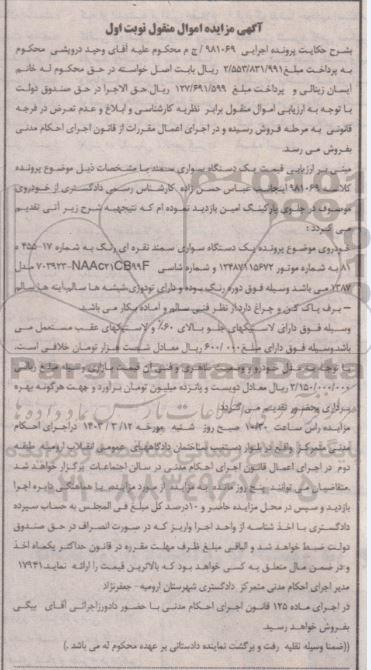 آگهی مزایده اموال منقول نوبت اول
بشرح حکایت پرونده اجرایی ۹۸۱۰۶۹ / ج م محکوم علیه آقای وحید درویشی محکوم
به پرداخت مبلغ ۲/۵۵۳/۸۳۱/۹۹۱ ریال بابت اصل خواسته در حق محکوم له خانم
ایسان زینالی و پرداخت مبلغ ۱۲۷/۶۹۱/۵۹۹ ریال حق الاجرا در حق صندوق دولت
با توجه به ارزیابی اموال منقول برابر نظریه کارشناسی و ابلاغ و عدم تعرض در فرجه
قانونی به مرحله فروش رسیده و در اجرای اعمال مقررات از قانون اجرای احکام مدنی
بفروش می رسد.
مبنی بر ارزیابی قیمت یک دستگاه سواری سمند با مشخصات ذیل موضوع پرونده
کلاسه ۹۸۱۰۶۹ اینجانب عباس حسن زاده کارشناس رسمی دادگستری از خودروی
موصوف در جلوی پارکینگ امین بازدید نموده ام که نتیجه به شرح زیر آتی تقدیم
می گردد:
خودروی موضوع پرونده یک دستگاه سواری سمند نقره ای رنگ به شماره ۱۷-۴۵۵ ه
۸۱ به شماره موتور ۱۲۴۸۷۱۱۵۶۷۲ و شماره شاسی NAAC۲۱CB۹۹F۷۰۳۹۲۳ مدل
۱۳۸۷ می باشد وسیله فوق دوره رنگ بوده و دارای تودوزی شیشه ها سالم آینه ها سالم
– برف پاک کن و چراغ دارد از نظر فنی سالم و آماده بکار می باشد.
وسیله فوق دارای لاستیکهای جلو بالای ۶۰٪ و لاستیکهای عقب مستعمل می
باشد وسیله فوق دارای مبلغ ۶۰۰/۰۰۰ ریال معادل شصت هزار تومان خلافی است.
با توجه به مدل خودرو و وضعیت ظاهری و فنی آن قیمت بازار
۲/۱۵۰/۰۰۰/۰۰۰ ریال معادل دویست و پانزده میلیون تومان برآورد و جهت هرگونه بهره
برداری وحضور تقدیم می گردد.
مزایده راس ساعت ۱۰/۳۰ صبح روز شنبه مورخه ۱۴۰۳/۳/۱۲ در اجرای احکام
مدنی متمرکز واقع در بلوار دستغیب ساختمان دادگاههای عمومی انقلاب ارومیه طبقه
دوم در اجرای اعمال قانون اجرای احکام مدنی در سالن اجتماعات برگزار خواهد شد
متقاضیان می توانند پنج روز مانده به مزایده از مورد مزایده با هماهنگی دایره اجرا
بازدید و سپس در محل مزایده حاضر و ۱۰درصد کل مبلغ فی المجلس به حساب سپرده
دادگستری با اخذ شناسه از واحد اجرا واریز که در صورت انصراف در حق صندوق
دولت ضبط خواهد شد و الباقی مبلغ ظرف مهلت مقرره در قانون حداکثر یکماه اخذ
و در ضمن مال متعلق به کسی خواهد بود که بالاترین قیمت را ارائه نماید ۱۷۹۴۱
مدیر اجرای احکام مدنی متمرکز دادگستری شهرستان ارومیه- جعفرنژاد
در اجرای ماده ۱۲۵ قانون اجرای احکام مدنی با حضور دادورز اجرائی آقای بیگی
بفروش خواهد رسید.
((ضمنا وسیله نقلیه رفت و برگشت نماینده دادستانی بر عهده محکوم له می باشد.)